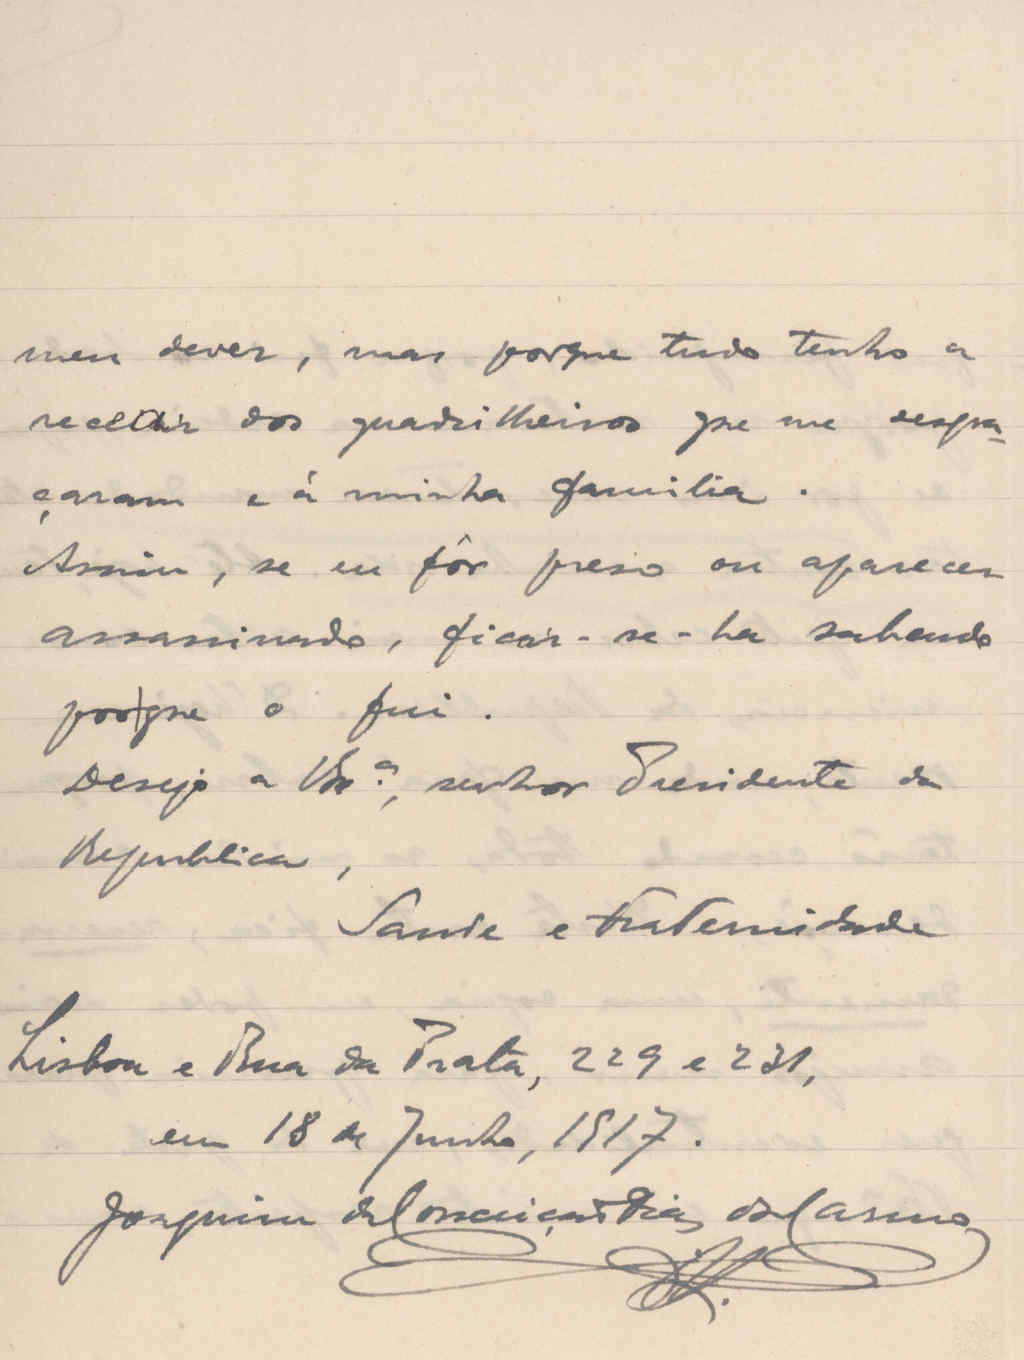 meu dever, mas porque tudo tenho a
recear dos quadrilheiros que me desgra-
çaram e á minha familia.
Assim, se eu fôr preso ou aparecer
assassinado, ficar-se-ha sabendo
porque o fui.
Desejo a V. Ex.ª, senhor Presidente da
Republica,
Saude e Fraternidade
Lisboa e Rua da Prata, 229 e 231,
em 18 de Junho, 1917.
Joaquim da Conceição Dias do Carmo